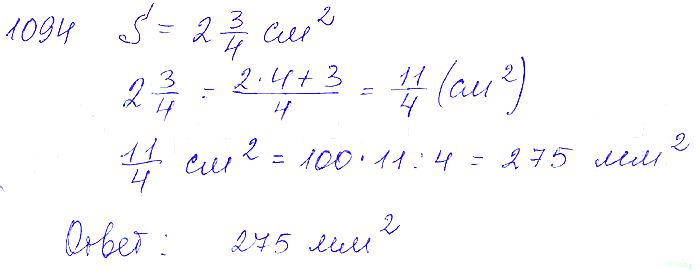 1094 S = 2 3/4 см²
2 3/4 = (2·4+3)/4 = 11/4 (см²)
11/4 см² = 100·11:4 = 275 мм²
Ответ: 275 мм²